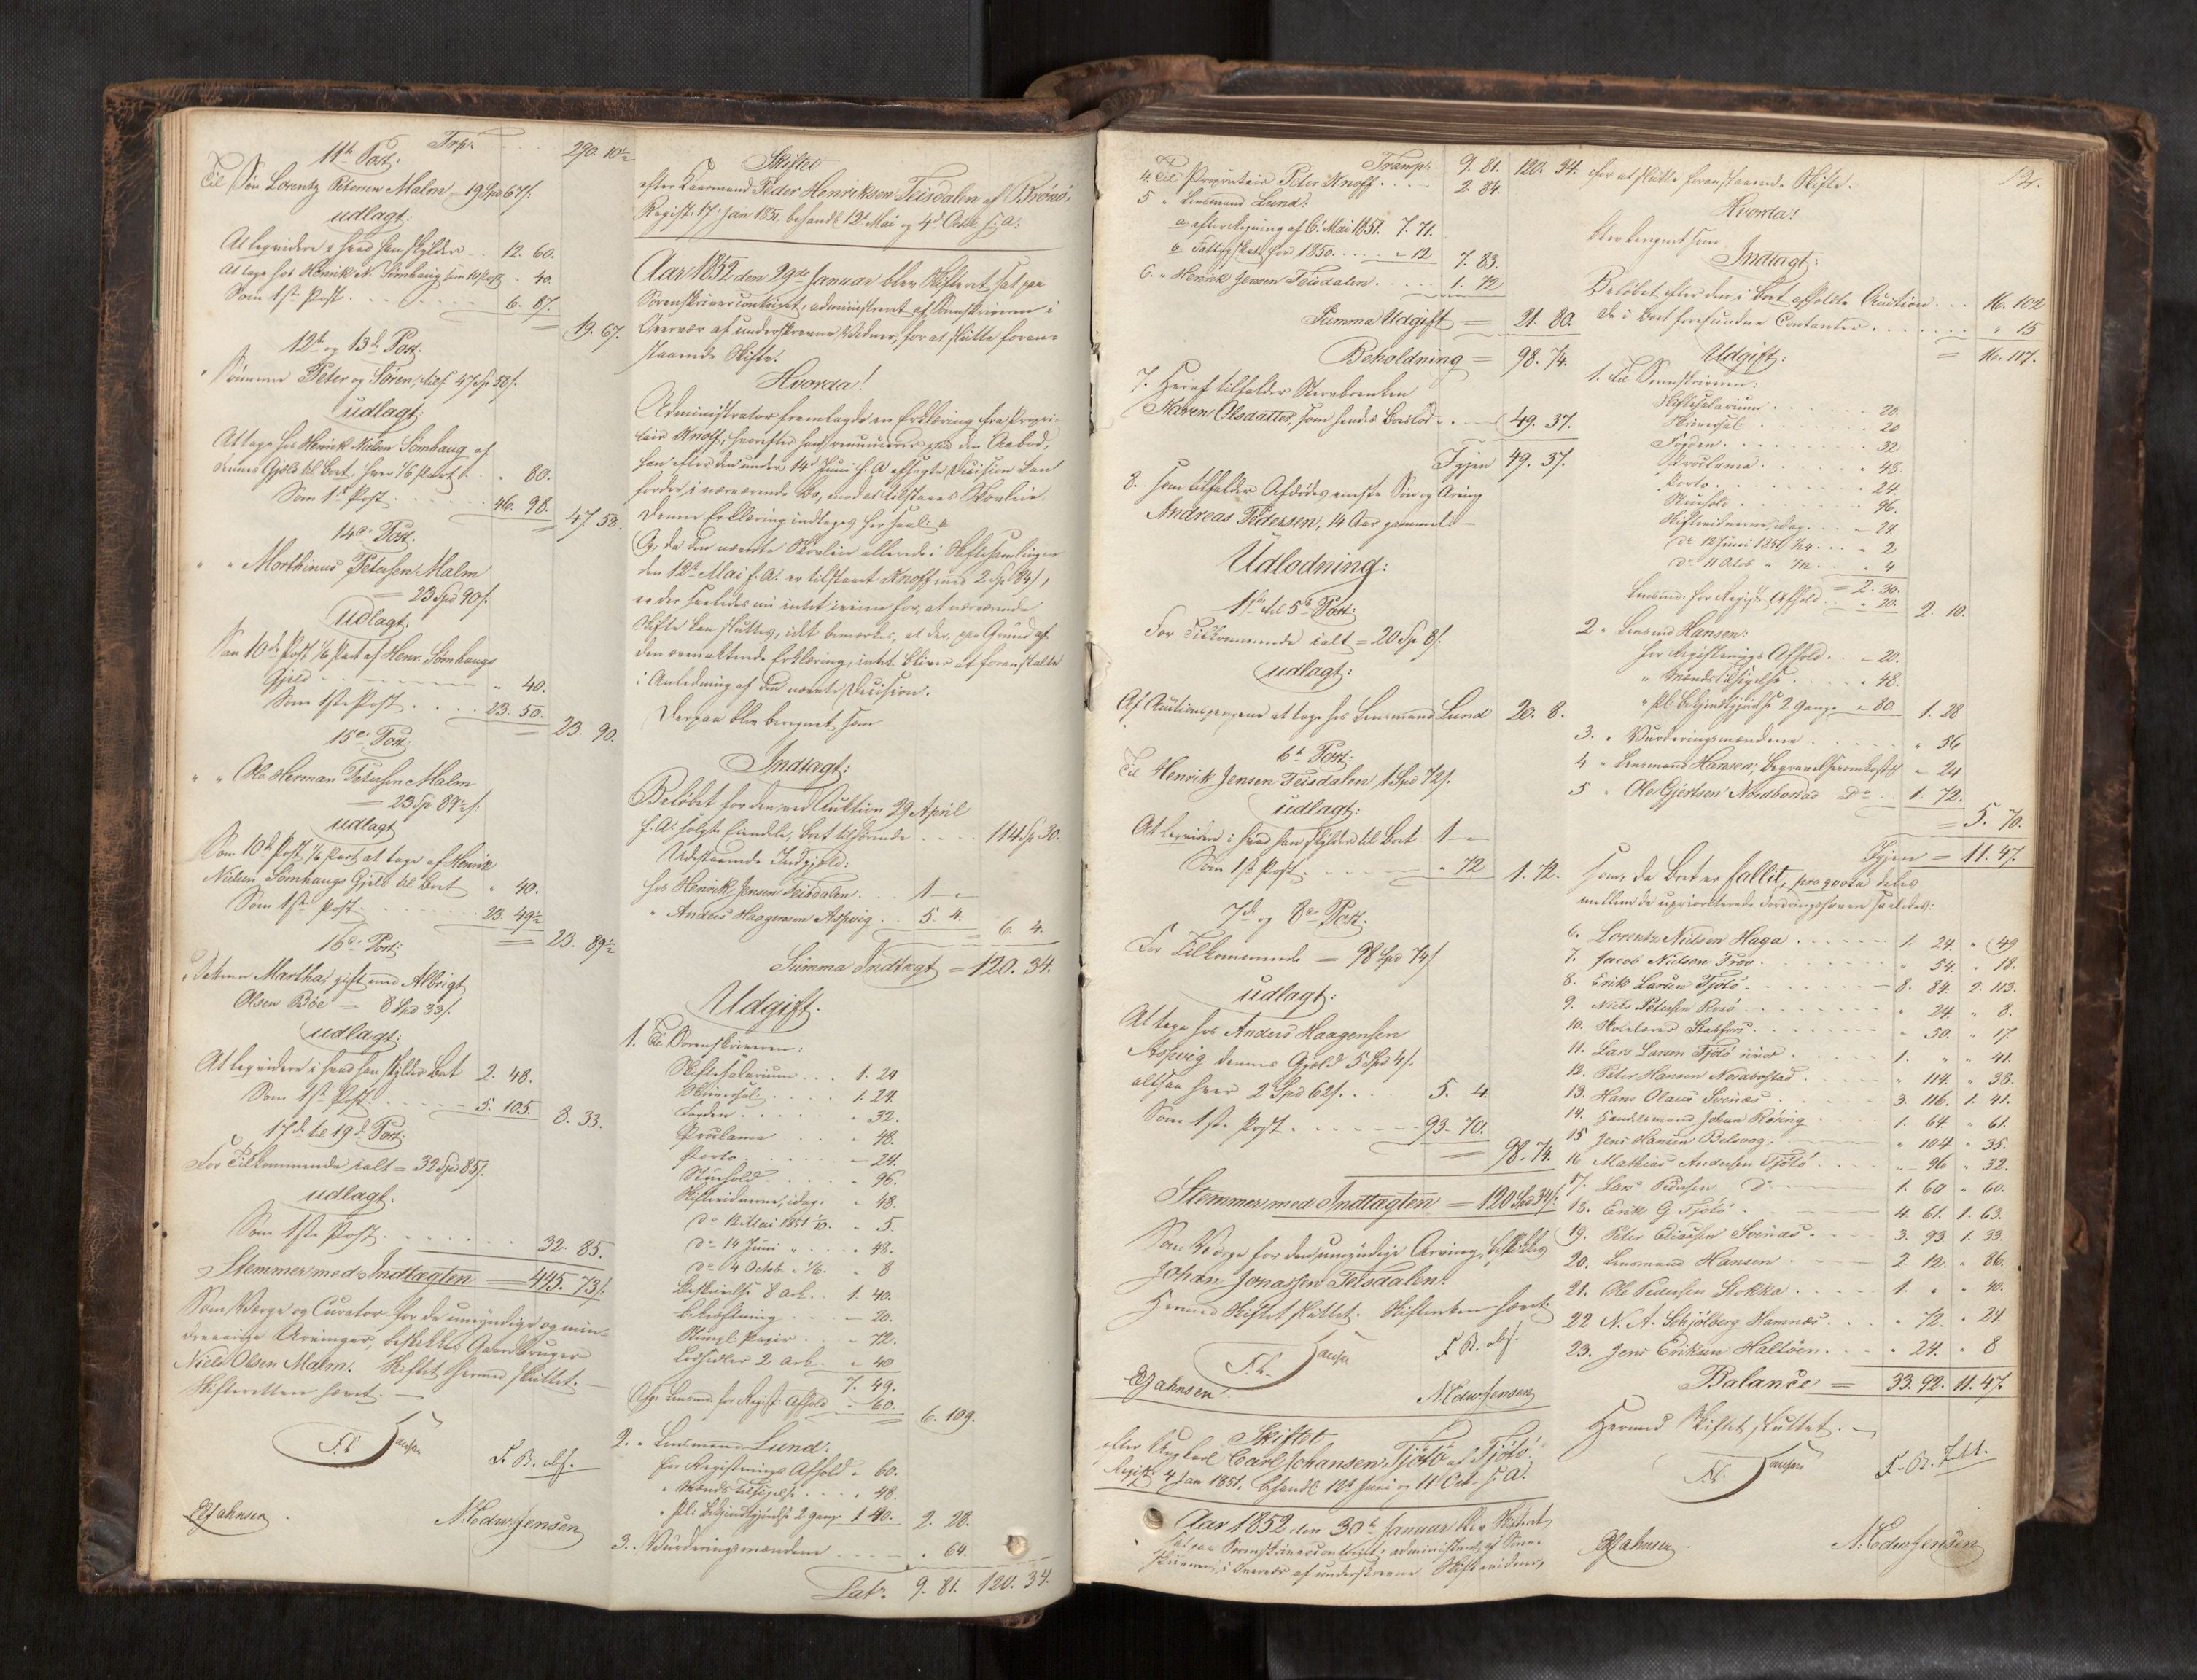 11te Post. Trsp. . . 290. 10½
Til Søn Lorentz Petersen Malm = 19 Spd 67 ß.
udlagt:
At leqvidere i hvad han skylder . . 12. 60.
At tage hos Henrik N. Sømhaug som 10 Post " 40.
Som 1ste Post . . . . 6. 87.
= 19. 67.
12te og 13de Post.
" Sønnerne Peter og Søren, tils. 47 Sp 58 ß.
udlagt:
At tage hos Henrik Nielsen Sømhaug af
dennes Gjæld til Boet, hver 1/6 Part . . " 80.
Som 1ste Post . . . . 46. 98.
= 47. 58.
14de Post.
" " Morthinus Petersen Malm
= 23 Spd 90 ß.
udlagt:
Som 10de Post 1/6 Part af Henr. Sømhaugs
Gjæld . . . " 40.
Som 1ste Post . . . . 23. 50.
= 23. 90.
15de Post.
" " Ole Herman Petersen Malm
= 23 Sp 89½ ß.
udlagt
Som 10de Post 1/6 Part at tage af Henrik
Nielsen Sømhaugs Gjæld til Boet " 40.
Som 1ste Post . . . . 23. 49½
= 23. 89½
16de Post:
" Datteren Martha gift med Albrigt
Olsen Bøe = 8 Spd 33 ß.
udlagt:
At leqvidere i hvad han skylder Boet 2. 48.
Som 1ste Post . . . . 5. 105. 8. 33.
17de til 19de Post:
For Tilkommende ialt = 32 Spd 85 ß.
udlagt.
Som 1ste Post . . . . 32. 85.
Stemmer med Indtægten = 445. 73 ß.
Som Værge og Curator for de umyndige og min-
dreaarige Arvinger, beskikkes Gaardbruger
Niels Olsen Malm. Skiftet hermed sluttet. —
Skifteretten hævet. —
F. B. obs.
EJahnsen
N. Edw. Jensen
Skiftet
efter Kaarmand Peder Henriksen Teisdalen af Brønø,
Regist. 17 Jan 1851, behandl 12te Mai og 4de Octb. s: A:
Aar 1852 den 29de Januar blev Skifteret sat paa
Sorenskrivercontoiret, administreret af Sorenskriveren i
Overvær af underskrevne Vidner, for at slutte foran-
staaende Skifte.
Hvorda!
Administrator fremlagde en Erklæring fra Propri-
tair Knoff, hvorefter han renuncerer paa den Aabod,
han efter den under 14de Juni f. A. afsagte Decision kan
fordre i nærværende Bo, mod at tilstaaes Skovleie.
Denne Erklæring indtages her saal:
Og, da den nævnte Skovleie allerede i Skiftesamlingen
den 12te Mai f. A. er tilstaaet Knoff med 2 Sp 84 ß,
er der saaledes nu intet iveien for, at nærværende
Skifte kan sluttes, idet bemærkes, at der, paa Grund af
den ovenanførte Erklæring, intet bliver at foranstalte
i Anledning af den nævnte Decision.
Derpaa blev beregnet som
Indtægt:
Beløbet for den ved Auktion 29 April
f. A. solgte Eiendele, Boet tilhørende . . . 114 Sp 30.
Udestaaende Indgjæld:
hos Henrik Jensen Teisdalen . . 1 "
" Anders Haagensen Aspvig . . 5. 4. 6. 4.
Summa Indtægt = 120. 34.
Udgift.
1. Til Sorenskriveren:
Skiftesalarium . . . 1. 24
Skriversal . . . 1. 24.
Fogden . . . " 32.
Proclama . . . " 48.
Porto . . . " 24.
Stuehold . . . " 96.
Skiftevidnerne, idag: " 48.
do 12 Mai 1851 1/10. " 5.
do 14 Juni " . . . " 48.
do 4 Octob " 1/6. " 8
Beskrivelse 8 ark. 1. 40.
Bekræftning . . " 20.
Stempl. Papir . . " 72.
Lodsedler 2 ark . " 40
7. 49.
Afg. Lensmd. for Regist. Afhold " 60. 6. 109.
2. " Lensmand Lund:
for Registrerings Afhold " 60.
" Mænds tilsigelse . . " 48.
" Pl. Bekjendtgjørelse 2 gange 1 40. 2. 28.
3. " Vurderingsmændene . . . " 64.
Lats. 9. 81. 120. 34.
Transp. 9. 81. 120. 34.
4. Til Proprietair Peter Knoff . . . 2. 84.
5 " Lensmand Lund:
a efter Regning af 6. Mai 1851. 7. 71.
b Fattigskat for 1850 . . . " 12 7. 83.
6. " Henrik Jensen Teisdalen . . . 1. 72
Summa Udgift = 21. 80.
Beholdning = 98. 74.
7. Heraf tilfalder Stervboenken
Karen Olsdatter, som hendes Boeslod . . 49. 37.
Igjen 49. 37.
8. som tilfalder Afdødes eneste Søn og Arving
Andreas Pedersen, 14 Aar gammel. —
Udlodning:
1ste til 5te Post:
For Tilkommende ialt = 20 Sp 8 ß.
udlagt:
Af Auctionspengene at tage hos Lensmand Lund 20. 8.
6te Post:
Til Henrik Jensen Teisdalen 1 Spd 72 ß.
udlagt:
At leqvidere i hvad han skylder til Boet 1 "
Som 1ste Post . . . . " 72 1. 72.
7de og 8de Post.
For Tilkommende = 98 Spd 74 ß
udlagt:
At tage hos Anders Haagensen
Aspvig dennes Gjæld 5 Spd 4 ß.
altsaa hver 2 Spd 62 ß. . . . 5. 4.
Som 1ste Post . . . . 93. 70.
= 98. 74.
Stemmer med Indtægten = 120 Spd 34 ß.
Som Værge for den umyndige Arving, beskikkes
Johan Jonassen Teisdalen.
Hermed Skiftet sluttet. Skifteretten hævet.
F. B. obs.
EJahnsen.
N. Edw. Jensen
Skiftet
efter Ungkarl Carl Johansen Tjøtø af Tjøtø.
Regist. 4 Jan 1851, behandl: 12te Juni og 11 Oct. s. A.
Aar 1852, den 30te Januar blev Skifteret
sat paa Sorenskrivercontoiret, administreret af Soren-
skriveren, i Overvær af underskrevne Skiftevidner,
for at slutte foranstaaende Skifte.
Hvorda!
blev beregnet som
Indtægt:
Beløbet efter den i Boet afholdte Auction . . . 16. 102
De i Boet forefundne Contanter . . . . " 15
= 16. 117.
Udgift:
1. Til Sorenskriveren:
Skiftesalarium . . . . 20.
Skriversal . . . . 20
Fogden . . . . 32
Proclama . . . . " 48.
Porto . . . . " 24.
Stuehold . . . . " 96.
Skiftevidnerne, idag . . . " 24
do 12 Juni 1851 1/24 . . . " 2
do 11 Octb " 1/12 . . " 4
= 2. 30.
Lensmd. for Regist. Afhold . . " 20. 2. 10.
2 " Lensmd Hansen:
for Registrerings Afhold . . " 20.
" Mændstilsigelse . . . " 48.
" Pl. Bekjendtgjørelse 2 Gange " 80 1. 28
3. " Vurderingsmændene . . . " 56
4 " Lensmand Hansen, Begravelsesomkostn. " 24
5 " Ole Gjertsen Nordbostad Do . 1. 72.
= 5. 70.
Igjen = 11. 47.
som, da Boet er fallit, pro qvota deles
mellem de uprioriterede Fordringshavere saaledes:
6. Lorentz Nielsen Haga . . . 1. 24. " 49
7. Jacob Nielsen Prøv . . . " 54. " 18.
8. Erik Larsen Tjøtø . . . 8. 84. 2. 113.
9. Niels Petersen Rosø . . . " 24. " 8.
10. . . . " 50. " 17.
11. Lars Larsen Tjøtø . . . 1. " " 41.
12. Peter Hansen Nordbostad . . . " 114. " 38.
13. Hans Olaus Svinæs . . . 3. 116. 1. 41.
14. Handelsmand Johan Røring . . 1. 64. " 61.
15 Jens Hansen Belsvog . . . " 104 " 35.
16 Mathias Andersen Tjøtø . . . " 96 " 32.
17. Lars Pedersen Do . . . 1. 60 " 60.
18. Erik G Tjøtø . . . 4. 61. 1. 63.
19. Peter Eliassen Svinæs . . . 3. 93. 1. 33.
20. Lensmand Hansen . . . 2. 12. " 86.
21. Ole Pedersen Stokka . . . 1. " " 40.
22 N. A. Schjølberg Hamnæs . . . " 72. " 24.
23. Jens Eriksen Haltøen . . . " 24. " 8
Balance = 33. 92. 11. 47.
Hermed Skiftet sluttet. —
EJahnsen.
N. Edw. Jensen